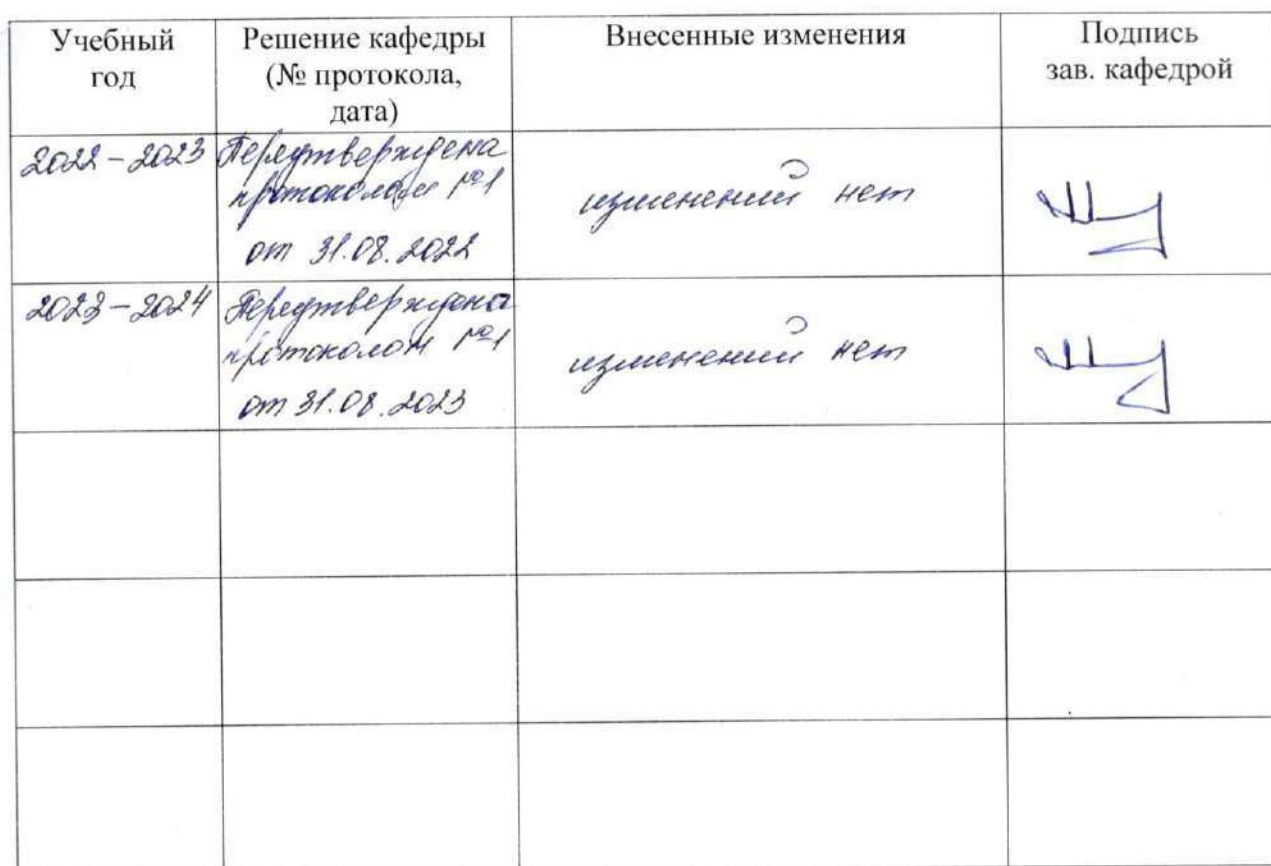 Учебный
год
Решение кафедры
(№ протокола,
дата)
Внесенные изменения
Подпись
зав. кафедрой
2022 – 2023
Переутверждена
протоколом №1
от 31.08.2022
изменений нет
2023 – 2024
Переутверждена
протоколом №1
от 31.08.2023
изменений нет